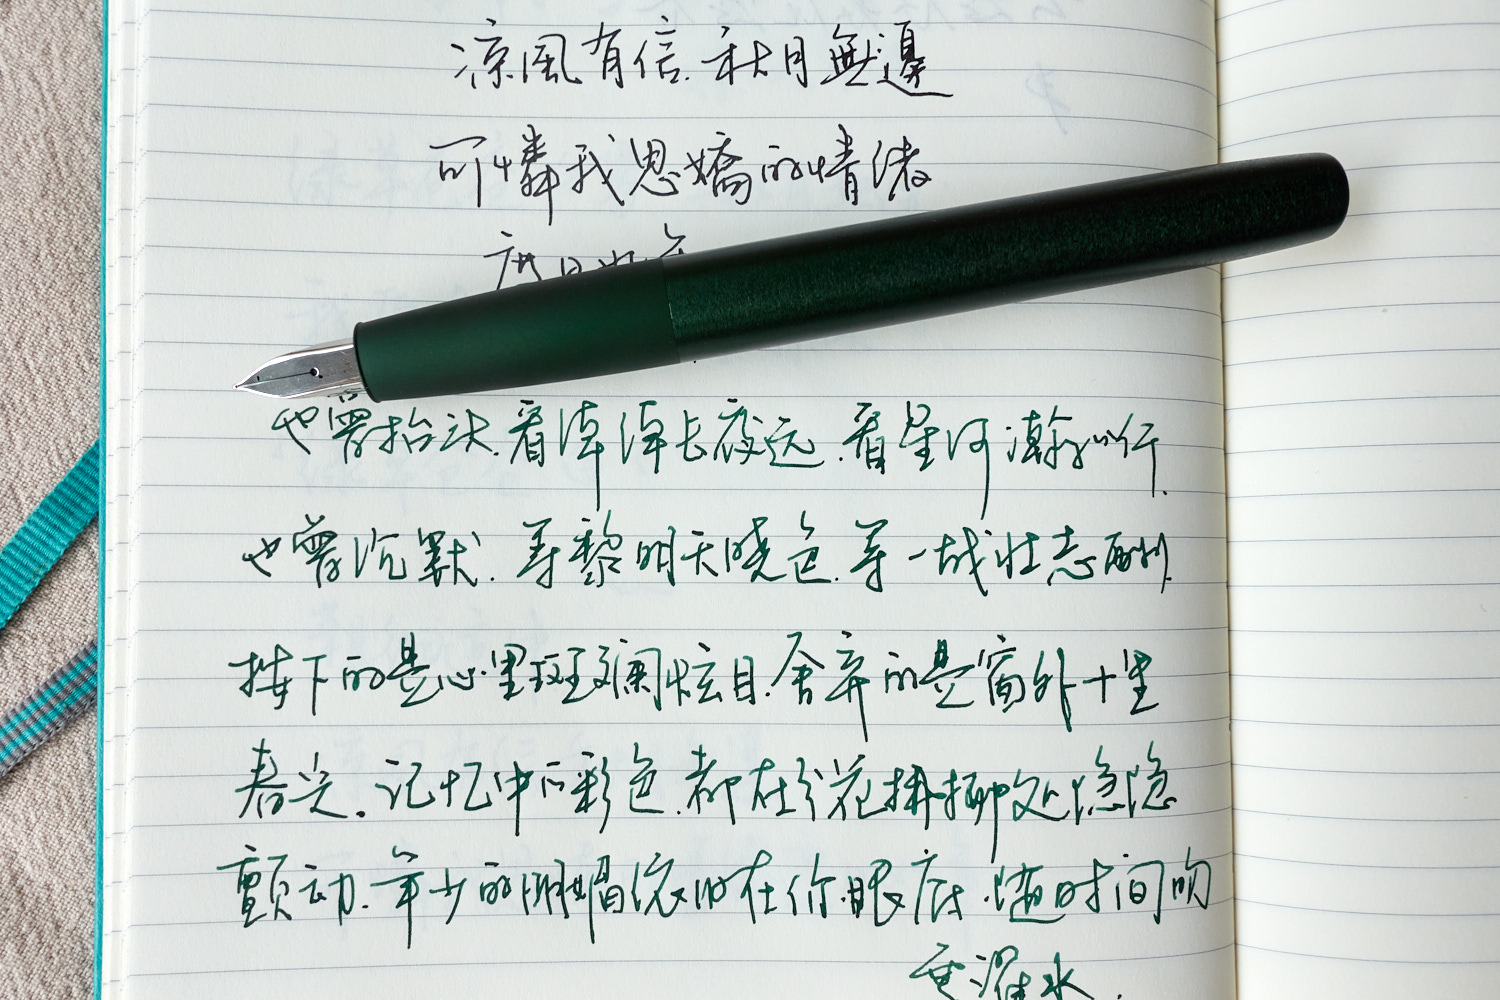 凉風有信.秋月無邊
可憐我思嬌的情绪
度日如年
也曾抬头.看长夜远.看星河瀚
也曾沉默.等黎明天晓色.等一战壮志酬.
按下的是心里斑斓炫目.舍弃的是窗外十里
春光.记忆中的彩色.都在分花拂柳处隐隐
颤动.年少的明媚依旧在你眼底.随时间吻
水.